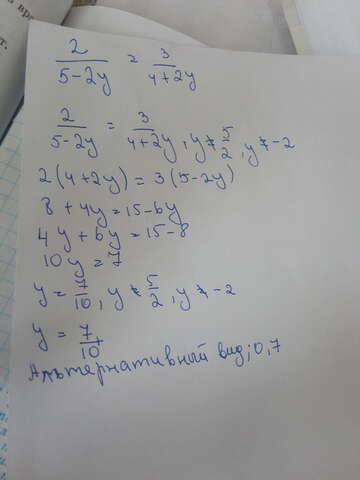 2/(5-2y) = 3/(4+2y)
2/(5-2y) = 3/(4+2y), y ≠ 5/2, y ≠ -2
2(4+2y) = 3(5-2y)
8+4y=15-6y
4y+6y=15-8
10y=7
y = 7/10, y ≠ 5/2, y ≠ -2
y = 7/10
Альтернативный вид; 0,7